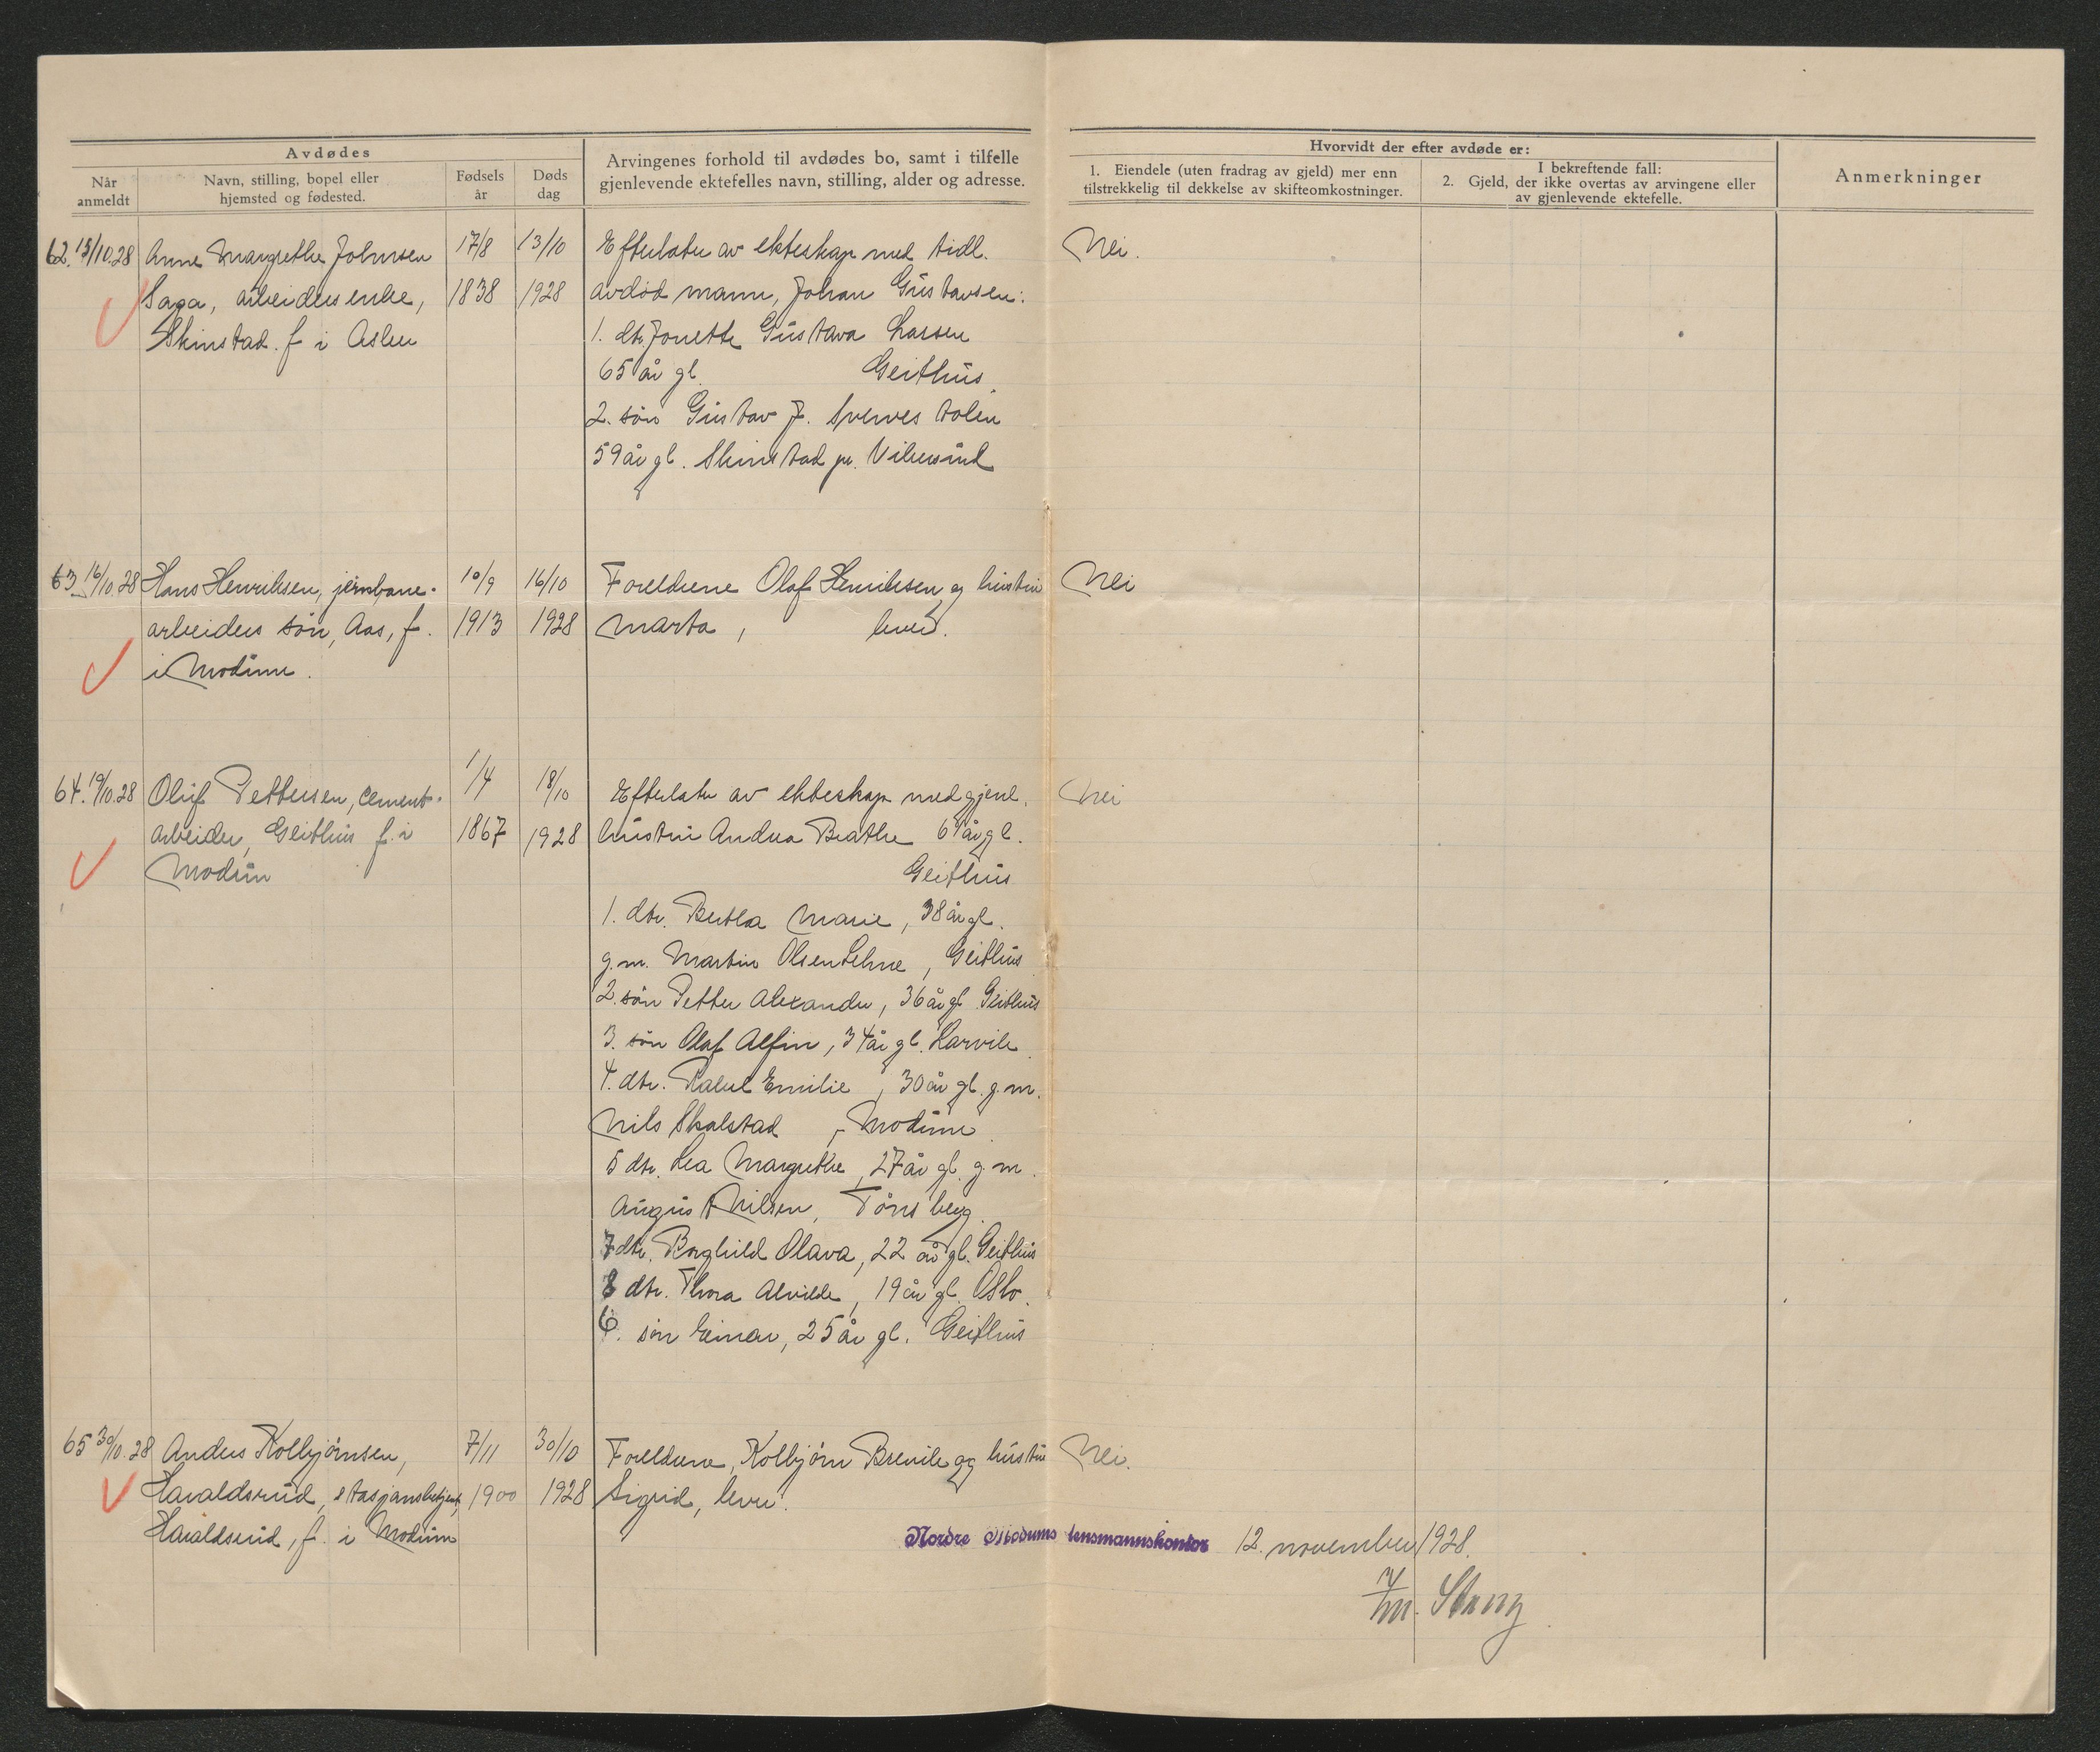 Avdødes
Når anmeldt
Navn, stilling, bopel eller hjemsted og fødested.
Fødsels år
Døds dag
Arvingenes forhold til avdødes bo, samt i tilfelle
gjenlevende ektefelles navn, stilling, alder og adresse.
Hvorvidt der efter avdøde er:
1. Eiendele (uten fradrag av gjeld) mer enn
tilstrekkelig til dekkelse av skifteomkostninger.
I bekreftende fall:
2. Gjeld, der ikke overtas av arvingene eller
av gjenlevende ektefelle.
Anmerkninger
62. 15/10.28 Anne Margrethe Johnsen 17/8 13/10
Saga, arbeiders enke, 1838 1928
Skinstad. f i Asker
Efterlater av ekteskap med tidl.
avdød mann, Johan Gustavsen:
1. dtr. Jonette Gustava Larsen
65 år gl. Geithus.
2. søn Gustav J.
59 år gl. Skinstad pr. Vikersund
Nei.
63 16/10.28 Hans Henriksen, jernbane- 10/9 16/10
arbeiders søn, Aas, f. 1913 1928
i Modum.
Foreldrene Olaf Henriksen og hustru
Marta, lever.
Nei
64. 19/10.28 Oluf Pettersen, cement- 1/4 18/10
arbeider, Geithus f. i 1867 1928
Modum
Efterlater av ekteskap med gjenl.
hustru Andrea Beathe 61 år gl.
Geithus
1. dtr. Bertha Marie, 38 år gl.
g.m. Martin Olsen Lehne, Geithus
2. søn Petter Alexander, 36 år gl. Geithus
3. søn Olaf Alfin, 34 år gl. Larvik
4. dtr. Rakel Emilie, 30 år gl. g.m.
Nils Skalstad, Modum
5 dtr. Lea Margrethe, 27 år gl. g.m.
August Nilsen, Tønsberg.
7 dtr. Borghild Olava, 22 år gl. Geithus
8 dtr. Thora Alvilde, 19 år gl. Oslo.
6. søn Einar, 25 år gl. Geithus
Nei
65 30/10.28 Anders Kolbjørnsen, 7/11 30/10
Haraldsrud, stasjonsbetjent, 1900 1928
Haraldsrud, f. i Modum
Foreldrene, Kolbjørn Brevik og hustru
Sigrid, lever.
Nei.
Nordre Modums lensmannskontor 12. november 1928.
Stang